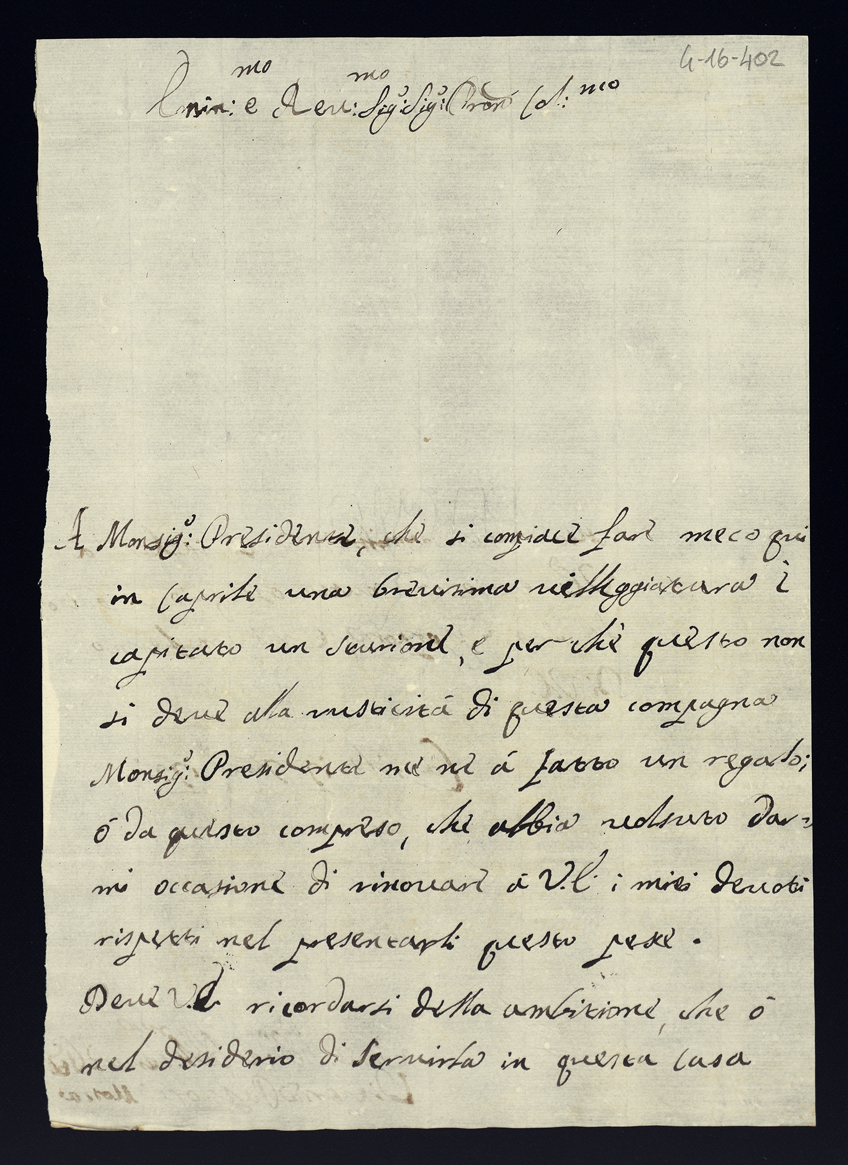 4-16-402
Emin:mo e Reu:mo Sigre: Sigre: Pron Col:mo
A Monsigre: Presidente, che si compiace fare meco qui
in Caprile una breuisima uilleggiatura è
capitato un sturione, e per chè questo non
si deue alla rusticità di questa compagna
Monsigre: Presidente me ne á fatto un regalo;
ó da questo compreso, che abbia uolsuto dar=
mi occasione di rinouare á V.E. i miei deuoti
rispetti nel presentarli questo pesce.
Deue V.E. ricordarsi della ambitione, che ó
nel desiderio di seruirla in questa Casa